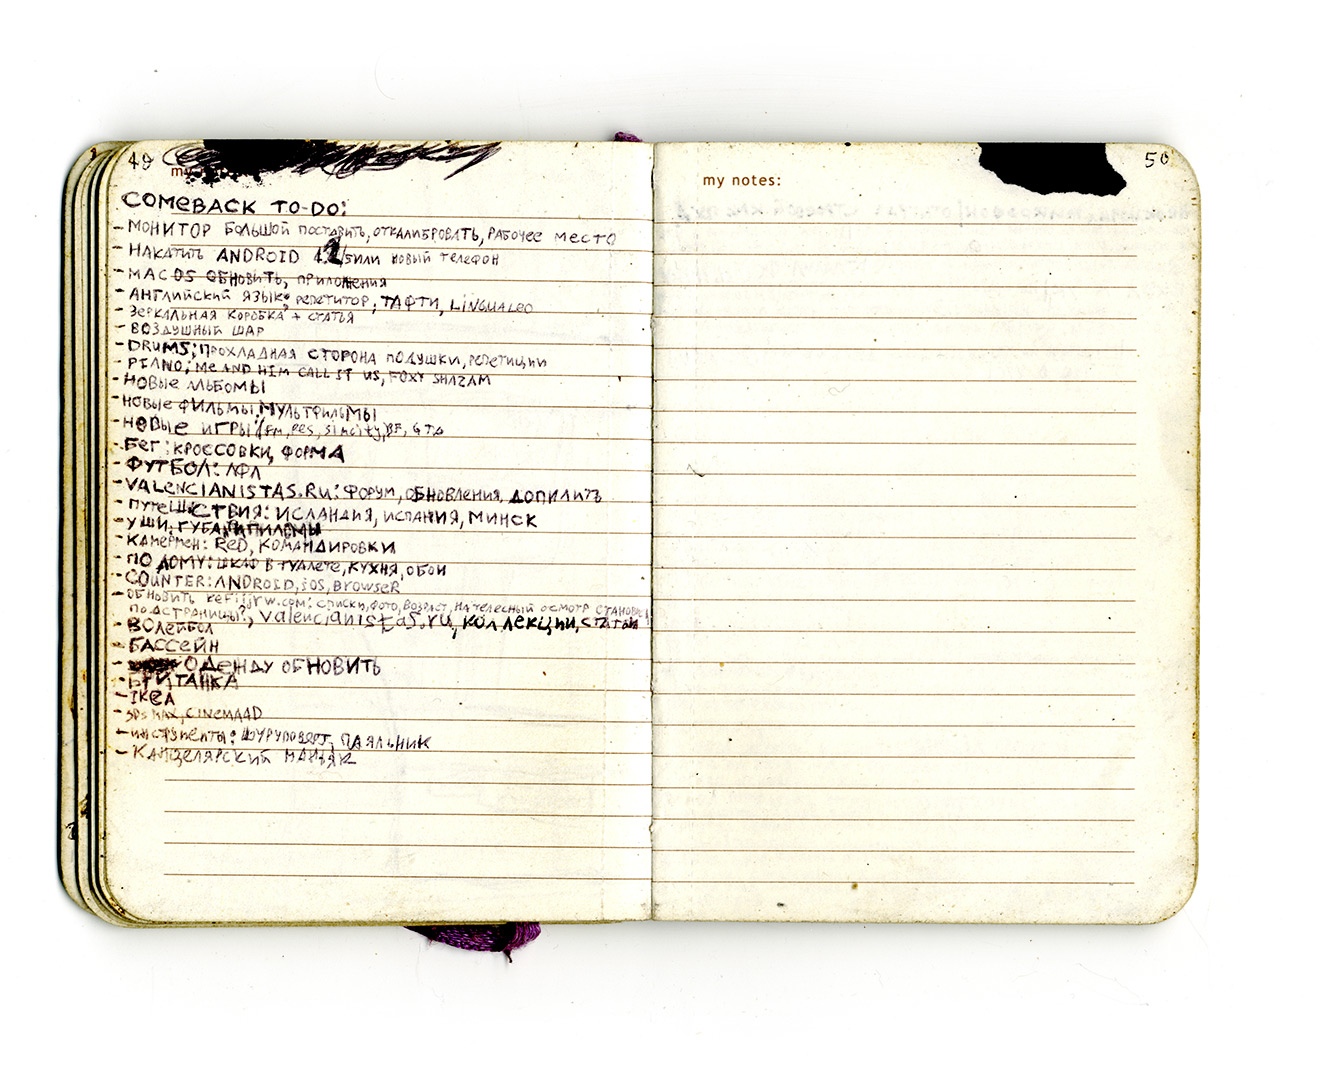 49
my
COMEBACK TO-DO:
- МОНИТОР БОЛЬШОЙ ПОСТАВИТЬ, ОТКАЛИБРОВАТЬ, РАБОЧЕЕ МЕСТО
- НАКАТИТЬ ANDROID 4.2/5 ИЛИ НОВЫЙ ТЕЛЕФОН
- MAC OS ОБНОВИТЬ, ПРИЛОЖЕНИЯ
- АНГЛИЙСКИЙ ЯЗЫК: РЕПЕТИТОР, ТАФТИ, LINGUALEO
- ЗЕРКАЛЬНАЯ КОРОБКА + СТАТЬЯ
- ВОЗДУШНЫЙ ШАР
- DRUMS: ПРОХЛАДНАЯ СТОРОНА ПОДУШКИ, РЕПЕТИЦИИ
- PIANO: ME AND HIM CALL IT US, FOXY SHAZAM
- НОВЫЕ АЛЬБОМЫ
- НОВЫЕ ФИЛЬМЫ, МУЛЬТФИЛЬМЫ
- НОВЫЕ ИГРЫ (FM, PES, Simcity, BF, GTA
- БЕГ: КРОССОВКИ, ФОРМА
- ФУТБОЛ: ЛФЛ
- VALENCIANISTAS.RU: ФОРУМ, ОБНОВЛЕНИЯ, ДОПИЛИТЬ
- ПУТЕШЕСТВИЯ: ИСЛАНДИЯ, ИСПАНИЯ, МИНСК
- УШИ, ГУБА,
- КАМЕРМЕН: RED, КОМАНДИРОВКИ
- ПО ДОМУ: ШКАФ В ТУАЛЕТЕ, КУХНЯ, ОБОИ
- COUNTER: ANDROID, iOS, BROWSER
- ОБНОВИТЬ СПИСКИ, ФОТО, ВОЗРАСТ, НА ТЕЛЕСНЫЙ ОСМОТР
ПОДСТРАНИЦЫ?, valencianistas.ru, КОЛЛЕКЦИИ, СТАТЬИ
- ВОЛЕЙБОЛ
- БАССЕЙН
- ОДЕЖДУ ОБНОВИТЬ
- БРИТАНКА
- IKEA
- 3DS MAX, CINEMA4D
- ИНСТРУМЕНТЫ: ШУРУПОВЕРТ, ПАЯЛЬНИК
- КАНЦЕЛЯРСКИЙ МАНЬЯК
50
my notes: